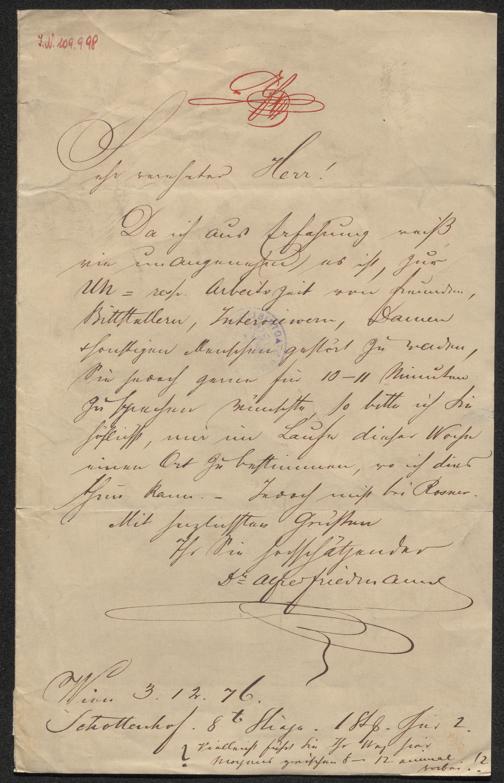 J.N. 109.998
Sehr verehrter Herr!
Da ich aus Erfahrung weiß
wie unangenehm es ist, zur
Uh= resp. Arbeitszeit von Freunden,
Bittstellern, Interviewern, Damen
& sonstigen Menschen gestört zu werden,
Sie jedoch gerne für 10–11 Minuten
zu sprechen wünschte, so bitte ich Sie
höflichst, mir im Laufe dieser Woche
einen Ort zu bestimmen, wo ich dies
thun kann. – Jedoch nicht bei Rosner.
Mit herzlichsten Grüßen
Ihr Sie hochschätzender
Dr Alfred Friedmann
Wien 3. 12. 76.
Schottenhof. 8t Stiege. 1 Stk. Thür 2.
Vielleicht führt Sie Ihr Weg hier
Morgens zwischen 8 – 12 einmal
vorbei!?